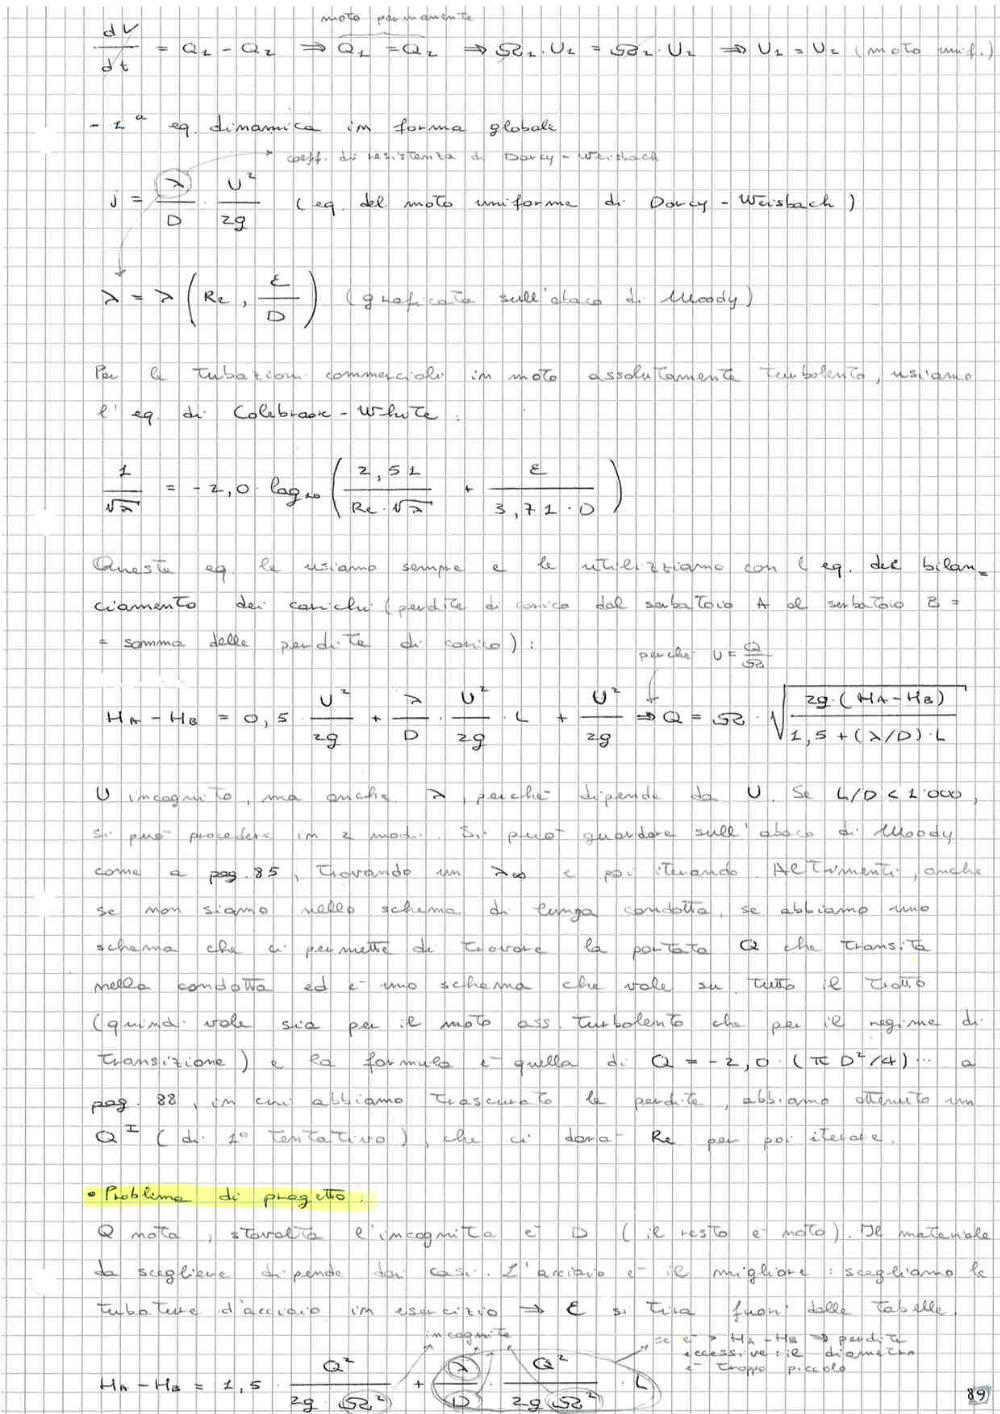 moto permanente
dV/dt = Q₁ - Q₂ ⇒ Q₁ = Q₂ ⇒ Ω₁ · U₁ = Ω₂ · U₂ ⇒ U₁ = U₂ (moto unif.)
- 1ª eq. dinamica in forma globale
coeff. di resistenza di Darcy - Weisbach
j = λ/D · U²/2g (eq. del moto uniforme di Darcy - Weisbach)
λ = λ (Re, ε/D) (graficata sull'abaco di Moody)
Per le tubazioni commerciali in moto assolutamente turbolento, usiamo
l'eq. di Colebrook - White :
1/√λ = -2,0 · log₁₀ (2,51/(Re · √λ) + ε/(3,71 · D))
Queste eq. le usiamo sempre e le utilizziamo con l'eq. del bilan=
ciamento dei carichi (perdite di carico dal serbatoio A al serbatoio B =
= somma delle perdite di carico) :
perché U = Q/Ω
HA - HB = 0,5 · U²/2g + λ/D · U²/2g · L + U²/2g ⇒ Q = Ω · √(2g · (HA - HB)/(1,5 + (λ/D) · L))
U incognito, ma anche λ, perché dipende da U. Se L/D < 1'000,
si può procedere in 2 modi. Si può guardare sull'abaco di Moody
come a pag. 85, trovando un λ∞ e poi iterando. Altrimenti, anche
se non siamo nello schema di lunga condotta, se abbiamo uno
schema che ci permette di trovare la portata Q che transita
nella condotta ed è uno schema che vale su tutto il tratto
(quindi vale sia per il moto ass. turbolento che per il regime di
transizione) e la formula è quella di Q = -2,0 · (π D²/4) ... a
pag. 88, in cui abbiamo trascurato le perdite, abbiamo ottenuto un
Qᴵ (di 1° tentativo), che ci darà Re per poi iterare.
• Problema di progetto.
Q nota, stavolta l'incognita è D (il resto è noto). Il materiale
da scegliere dipende dai casi. L'acciaio è il migliore : scegliamo le
tubature d'acciaio in esercizio ⇒ ε si tira fuori dalle tabelle.
incognite
se è > HA - HB ⇒ perdite
eccessive : il diametro
è troppo piccolo
HA - HB = 1,5 · Q²/(2g · Ω²) + λ/D · Q²/(2g · Ω²) · L
89